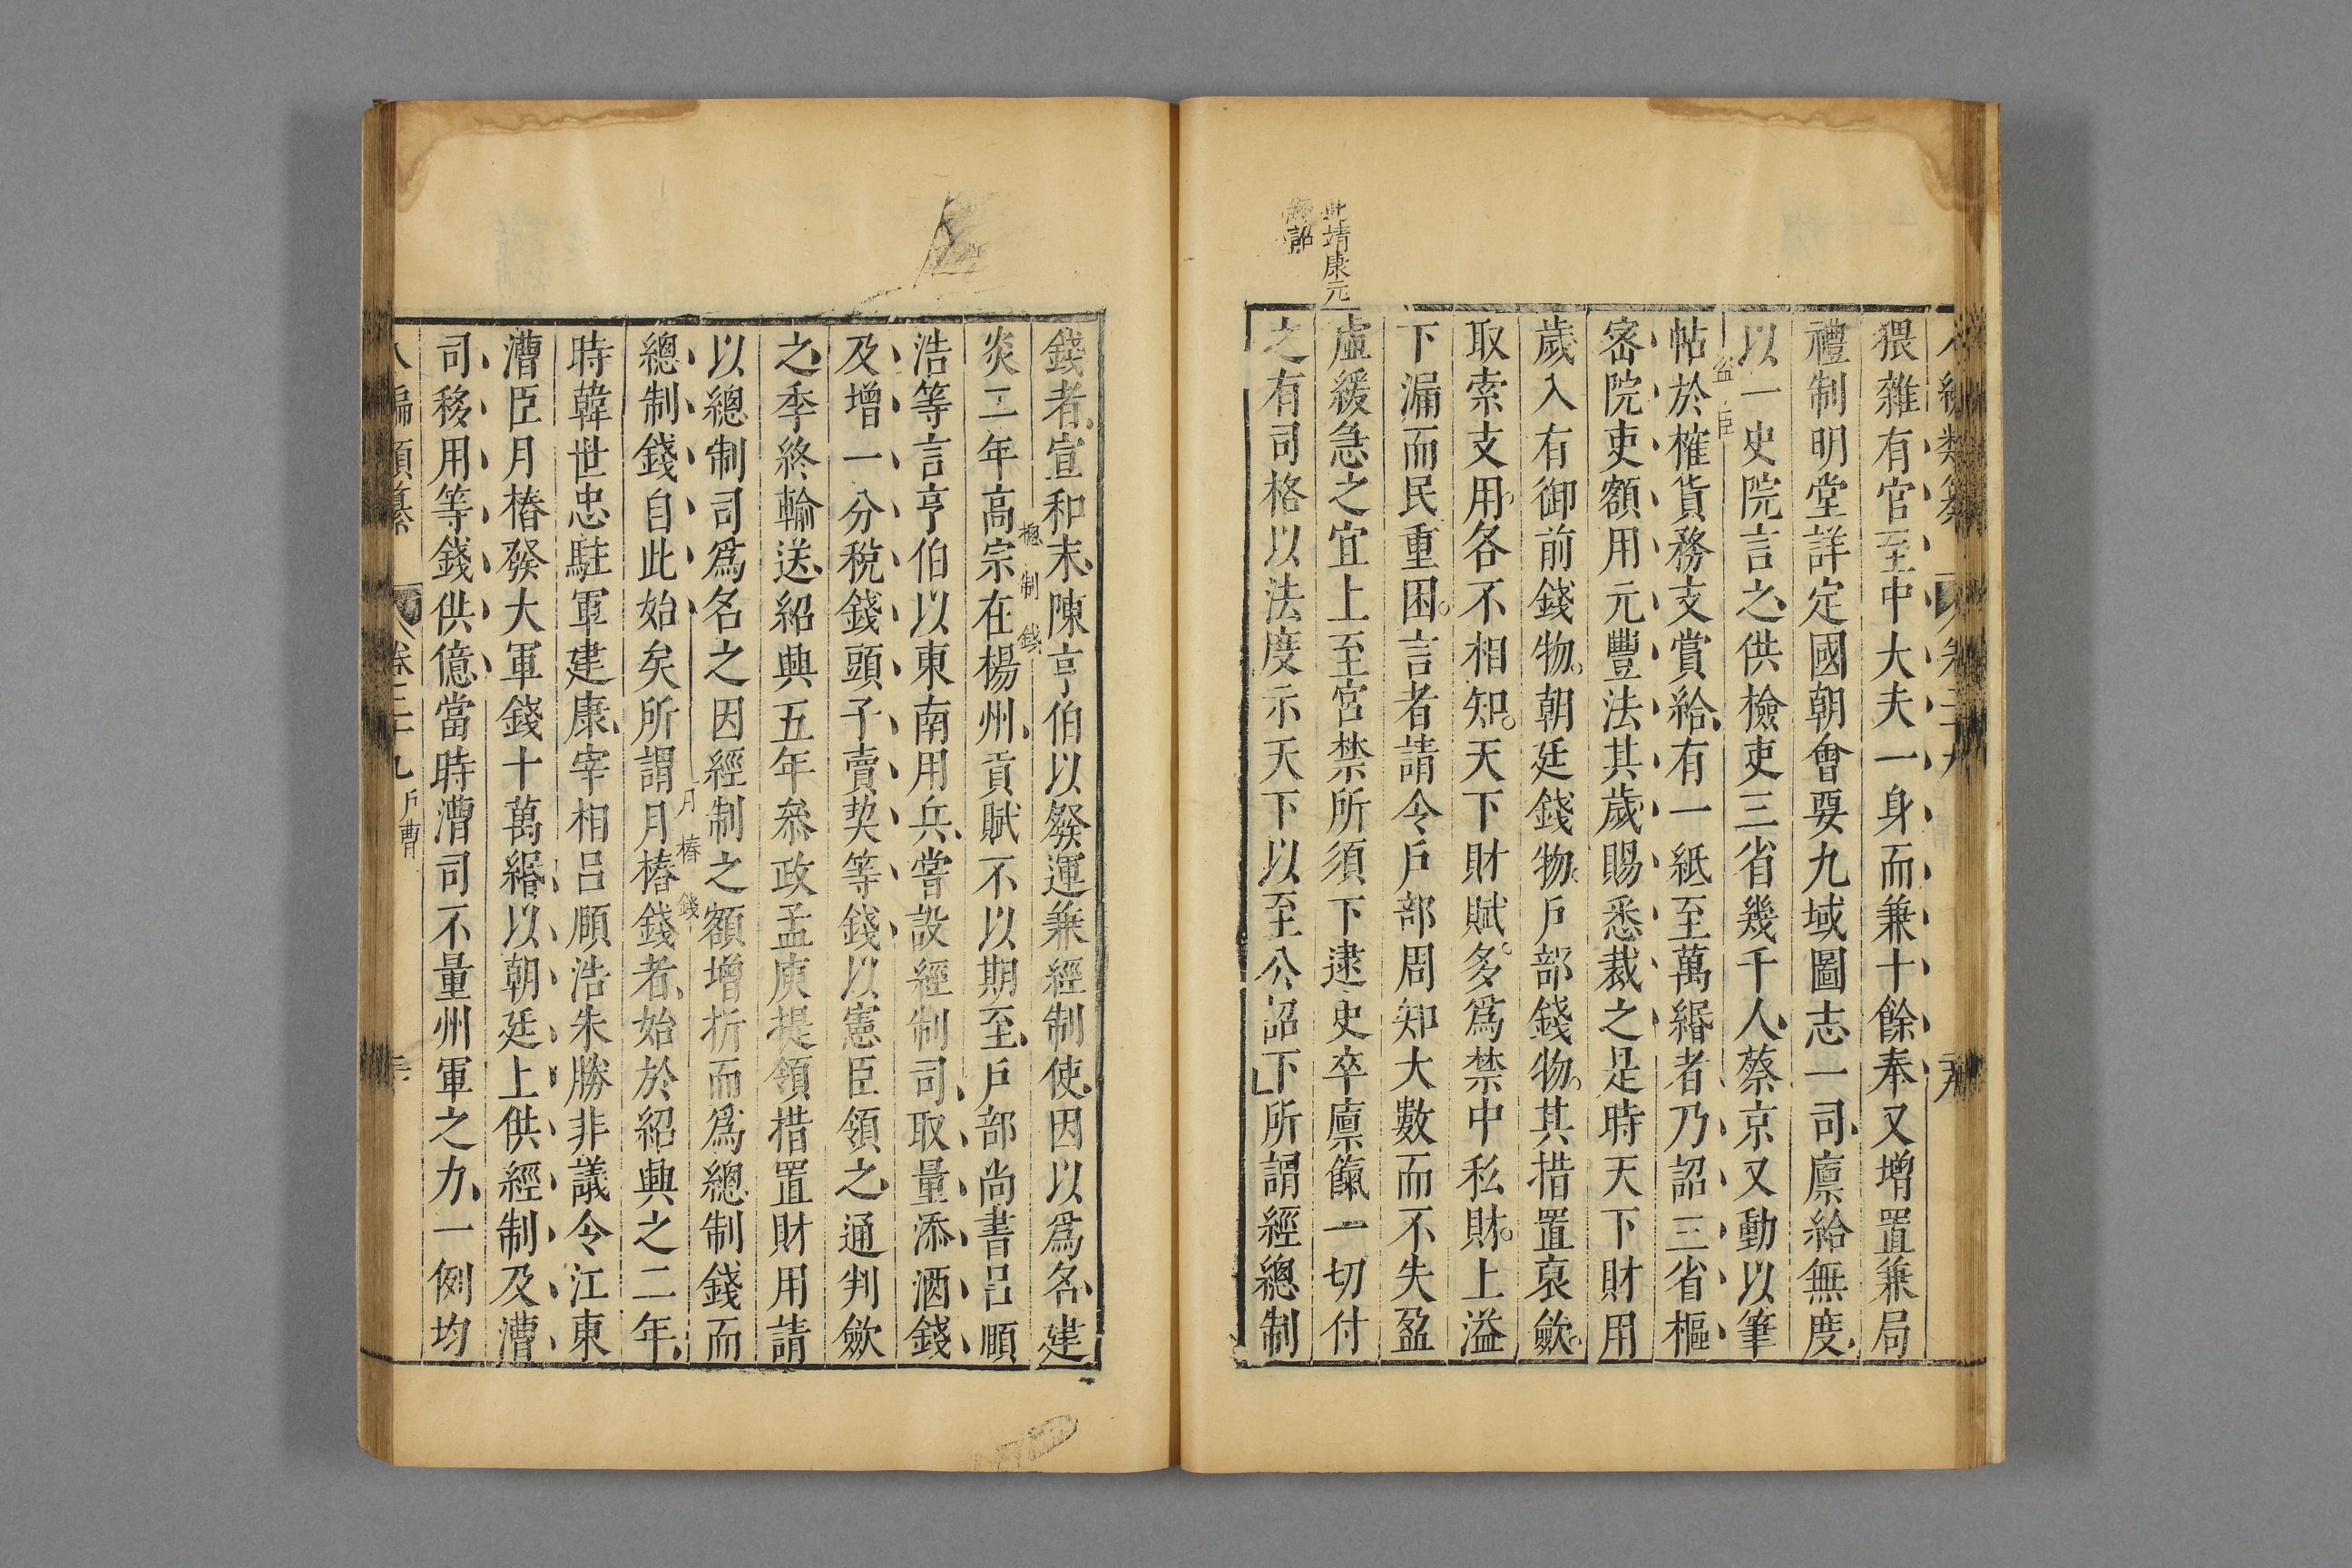 猥雜有官至中大夫一身而兼十餘奉又增置兼局
禮制明堂詳定國朝會要九域圖志一司廪給無度
以一史院言之供檢吏三省幾千人蔡京又動以筆
帖於榷貨務支賞給有一紙至萬緡者乃詔三省樞
密院吏額用元豐法其歲賜悉裁之是時天下財用
歲入有御前錢物朝廷錢物戶部錢物其措置裒歛
取索支用各不相知天下財賦多爲禁中私財上溢
下漏而民重困言者請令戶部周知大數而不失盈
虛緩急之宜上至宮禁所須下逮吏卒廪餼一切付
之有司格以法度示天下以至公詔下所謂經總制
靖康元
詔
錢者宣和末陳亨伯以發運兼經制使因以爲名建
總制錢
炎二年高宗在楊州貢賦不以期至戶部尚書呂頤
浩等言亨伯以東南用兵嘗設經制司取量添酒錢
及增一分稅錢頭子賣契等錢以憲臣領之通判歛
之季終輸送紹興五年叅政孟庾提領措置財用請
以總制司爲名之因經制之額增折而爲總制錢而
月樁錢
總制錢自此始矣所謂月樁錢者始於紹興之二年
時韓世忠駐軍建康宰相呂頤浩朱勝非議令江東
漕臣月樁發大軍錢十萬緡以朝廷上供經制及漕
司移用等錢供億當時漕司不量州軍之力一例均
八編類纂 卷二十九 戶曹